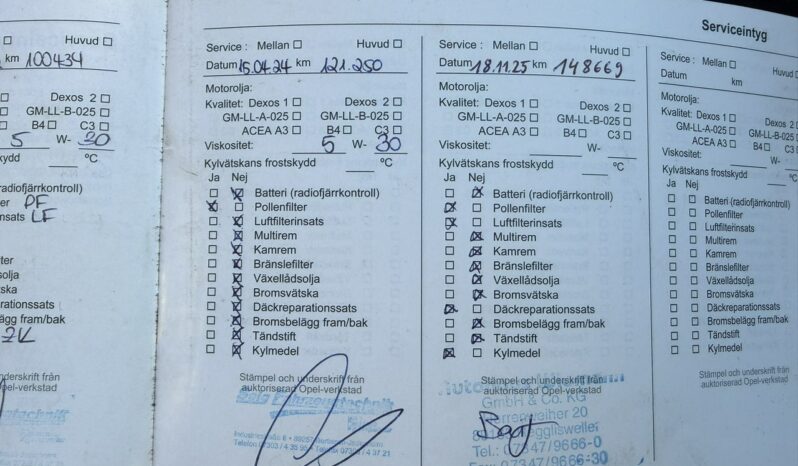 Serviceintyg
Huvud
km 100434
Dexos 2
GM-LL-B-025
B4 C3
5 W- 30
°C
PF
LF
Service : Mellan Huvud
Datum 15.04.24 km 121.250
Motorolja:
Kvalitet: Dexos 1 Dexos 2
GM-LL-A-025 GM-LL-B-025
ACEA A3 B4 C3
Viskositet: 5 W- 30
Kylvätskans frostskydd °C
Ja Nej
Batteri (radiofjärrkontroll)
Pollenfilter
Luftfilterinsats
Multirem
Kamrem
Bränslefilter
Växellådsolja
Bromsvätska
Däckreparationssats
Bromsbelägg fram/bak
Tändstift
Kylmedel
Stämpel och underskrift från
auktoriserad Opel-verkstad
Service : Mellan Huvud
Datum 18.11.25 km 148669
Motorolja:
Kvalitet: Dexos 1 Dexos 2
GM-LL-A-025 GM-LL-B-025
ACEA A3 B4 C3
Viskositet: W-
Kylvätskans frostskydd °C
Ja Nej
Batteri (radiofjärrkontroll)
Pollenfilter
Luftfilterinsats
Multirem
Kamrem
Bränslefilter
Växellådsolja
Bromsvätska
Däckreparationssats
Bromsbelägg fram/bak
Tändstift
Kylmedel
Stämpel och underskrift från
auktoriserad Opel-verkstad
GmbH & Co. KG
Herrenweiher 20
Tel.: 07347/9666-0
07347/9666-30
Service : Mellan Huvud
Datum km
Motorolja:
Kvalitet: Dexos 1 Dexos
GM-LL-A-025 GM-LL-B-02
ACEA A3 B4 C
Viskositet: W-
Kylvätskans frostskydd °C
Ja Nej
Batteri (radiofjärrkontroll)
Pollenfilter
Luftfilterinsats
Multirem
Kamrem
Bränslefilter
Växellådsolja
Bromsvätska
Däckreparationssats
Bromsbelägg fram/bak
Tändstift
Kylmedel
Stämpel och underskrift från
auktoriserad Opel-verkstad